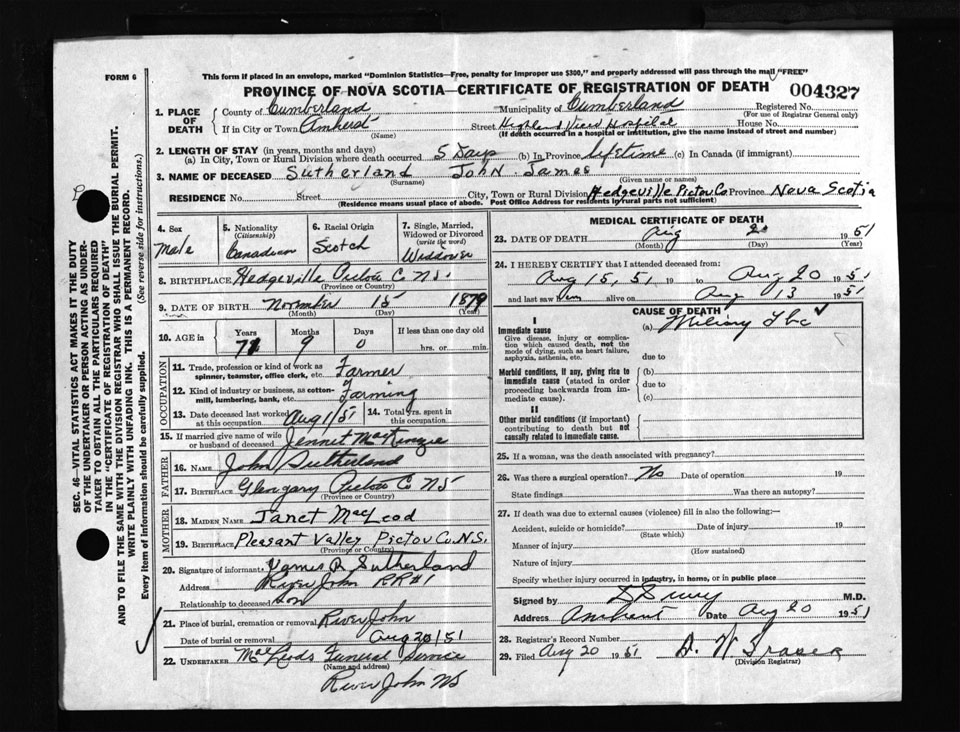 FORM 6
This form if placed in an envelope, marked "Dominion Statistics—Free, penalty for improper use $300," and properly addressed will pass through the mail "FREE"
PROVINCE OF NOVA SCOTIA—CERTIFICATE OF REGISTRATION OF DEATH 004327
1. PLACE OF DEATH
County of Cumberland Municipality of Cumberland Registered No.
(For use of Registrar General only)
If in City or Town Amherst Street Highland View Hospital House No.
(Name) (If death occurred in a hospital or institution, give the name instead of street and number)
2. LENGTH OF STAY (in years, months and days)
(a) In City, Town or Rural Division where death occurred 5 Days (b) In Province lifetime (c) In Canada (if immigrant)
3. NAME OF DECEASED Sutherland John James
(Surname) (Given name or names)
RESIDENCE No. Street City, Town or Rural Division Hedgeville Pictou Co. Province Nova Scotia
(Residence means usual place of abode. Post Office Address for residents in rural parts not sufficient)
4. Sex
Male
5. Nationality
(Citizenship)
Canadian
6. Racial Origin
Scotch
7. Single, Married, Widowed or Divorced
(write the word)
Widower
8. BIRTHPLACE Hedgeville Pictou C. NS.
(Province or Country)
9. DATE OF BIRTH November 15 1879
(Month) (Day) (Year)
10. AGE in
Years Months Days If less than one day old
71 9 0 hrs. or min.
OCCUPATION
11. Trade, profession or kind of work as spinner, teamster, office clerk, etc. Farmer
12. Kind of industry or business, as cotton-mill, lumbering, bank, etc. Farming
13. Date deceased last worked at this occupation Aug 1/51
14. Total yrs. spent in this occupation
15. If married give name of wife or husband of deceased Jennet MacKenzie
FATHER
16. NAME John Sutherland
17. BIRTHPLACE Glengary Pictou C NS
(Province or Country)
MOTHER
18. MAIDEN NAME Janet MacLeod
19. BIRTHPLACE Pleasant Valley Pictou Co. N.S.
(Province or Country)
20. Signature of informant James R Sutherland
Address River John RR#1
Relationship to deceased Son
21. Place of burial, cremation or removal River John
Date of burial or removal Aug 20/51
22. UNDERTAKER MacLeods Funeral Service
(Name and address)
River John NS
MEDICAL CERTIFICATE OF DEATH
23. DATE OF DEATH Aug 20 1951
(Month) (Day) (Year)
24. I HEREBY CERTIFY that I attended deceased from:
Aug 15, 51, 19 to Aug 20 1951
and last saw him alive on Aug 13 1951
CAUSE OF DEATH
I
Immediate cause
Give disease, injury or complication which caused death, not the mode of dying, such as heart failure, asphyxia, asthenia, etc.
(a) Miliary Tbc
due to
Morbid conditions, if any, giving rise to immediate cause (stated in order proceeding backwards from immediate cause).
(b)
due to
(c)
II
Other morbid conditions (if important) contributing to death but not causally related to immediate cause.
25. If a woman, was the death associated with pregnancy?
26. Was there a surgical operation? No Date of operation 19
State findings Was there an autopsy?
27. If death was due to external causes (violence) fill in also the following:—
Accident, suicide or homicide? Date of injury 19
(State which)
Manner of injury
(How sustained)
Nature of injury
Specify whether injury occurred in industry, in home, or in public place
Signed by M.D.
Address Amherst Date Aug 20 1951
28. Registrar's Record Number
29. Filed Aug 20 1951 D. W. Fraser
(Division Registrar)
SEC. 46—VITAL STATISTICS ACT MAKES IT THE DUTY OF THE UNDERTAKER OR PERSON ACTING AS UNDERTAKER TO OBTAIN ALL THE PARTICULARS REQUIRED IN THE "CERTIFICATE OF REGISTRATION OF DEATH" AND TO FILE THE SAME WITH THE DIVISION REGISTRAR WHO SHALL ISSUE THE BURIAL PERMIT.
WRITE PLAINLY WITH UNFADING INK. THIS IS A PERMANENT RECORD.
Every item of information should be carefully supplied. (See reverse side for instructions.)